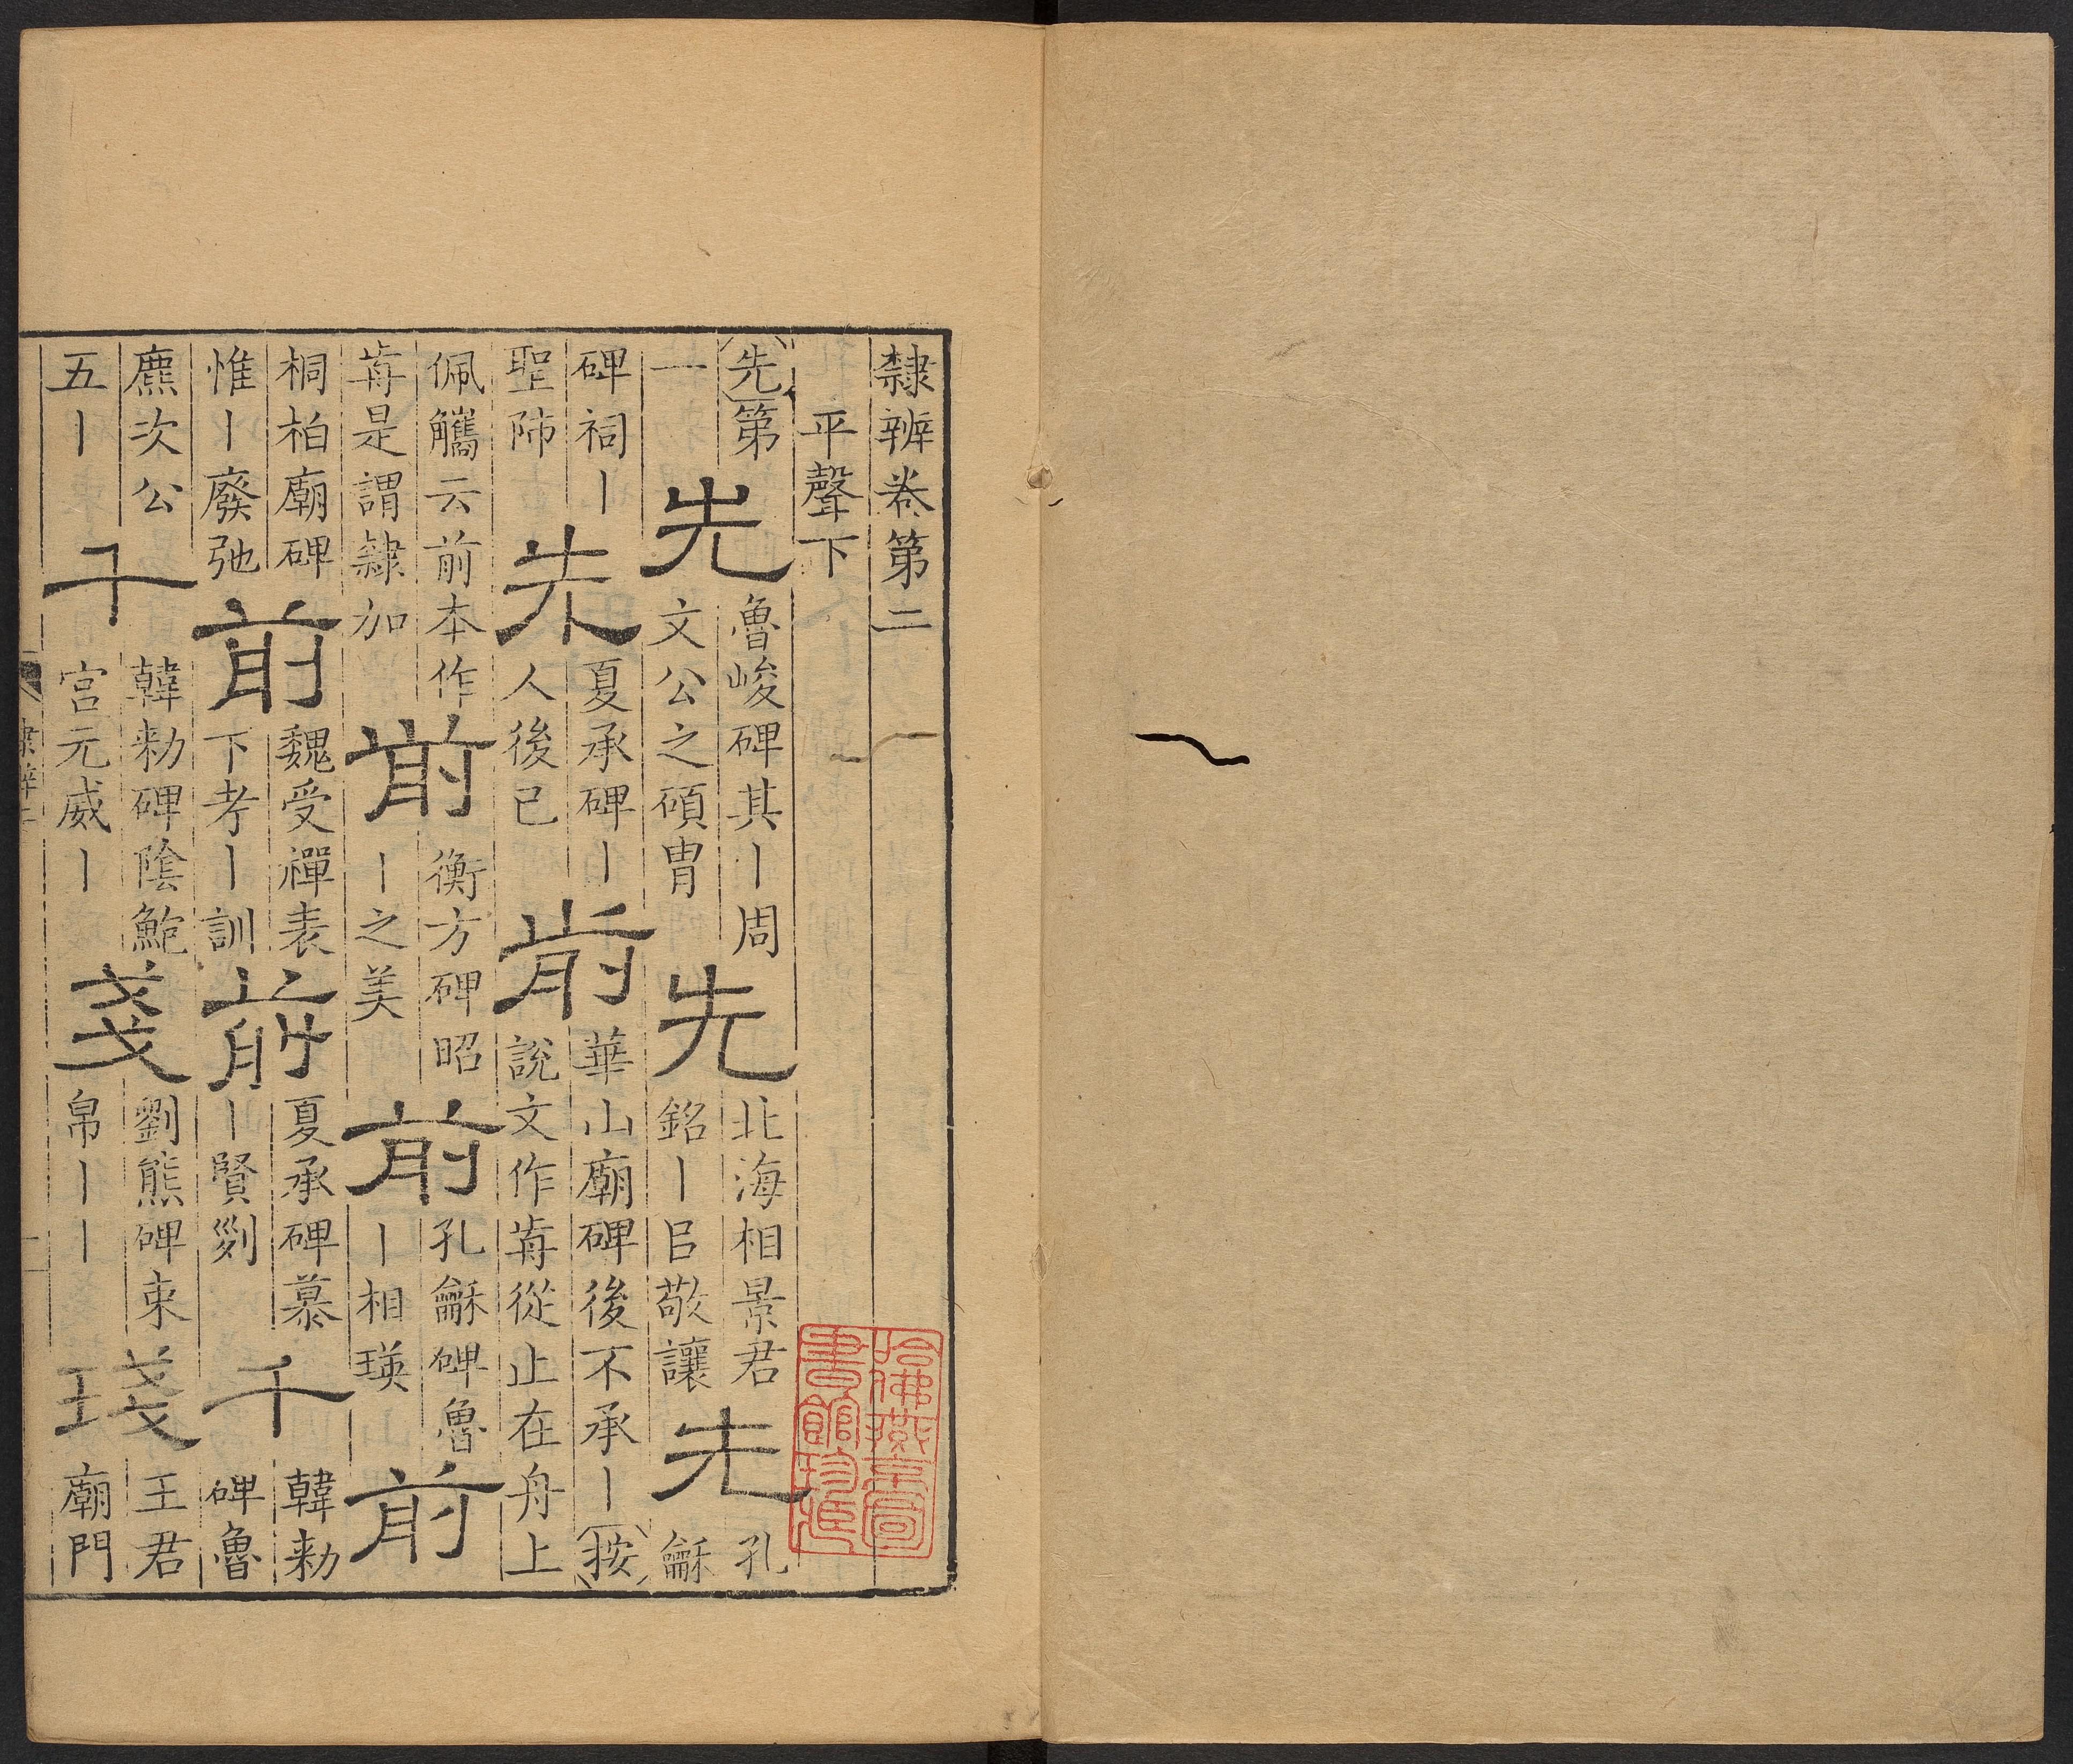 隸辨卷第二
平聲下
先第
一
先
魯峻碑其丨周
文公之碩胄
先
北海相景君
銘丨㠯敬讓
先
孔
龢
碑祠丨
聖師
先
夏承碑丨
人後己
歬
華山廟碑後不承丨按
說文作歬從止在舟上
佩觿云前本作
歬是謂隸加
前
衡方碑昭
丨之美
前
孔龢碑魯
丨相瑛
前
桐柏廟碑
惟丨廢弛
前
魏受禪表
下考丨訓
前
夏承碑慕
丨賢列
千
韓勑
碑魯
麃次公
五丨
千
韓勑碑陰鮑
宮元威丨
戔
劉熊碑束
帛丨丨
琖
王君
廟門
哈佛燕京圖書館珍藏